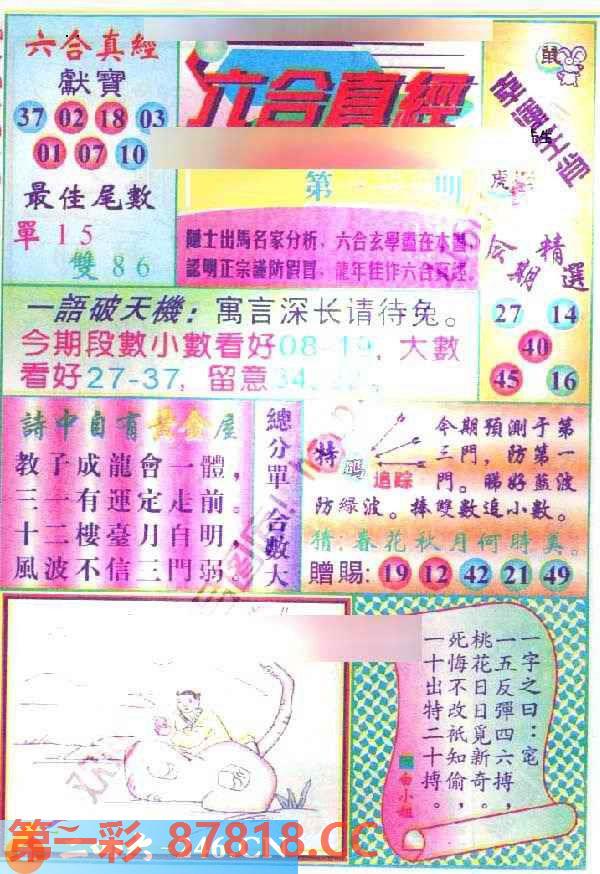 六合真經
獻寶
37 02 18 03
01 07 10
最佳尾數
單15
雙86
六合真經
第
期
隱士出馬名家分析，六合玄學盡在本圖，
認明正宗謹防假冒，龍年佳作六合真經。
鼠
幸運生肖
虎
今期精選
27 14
40
45 16
一語破天機：寓言深长请待兔。
今期段數小數看好08-19，大數
看好27-37，留意
詩中自有黃金屋
教子成龍會一體，
三一有運定走前。
十二樓臺月自明，
風波不信三門弱。
總分單
合數大
特碼
追踪
今期預測于第
三門，防第一
門。睇好藍波
防綠波。捧雙數追小數。
猜：春花秋月何時美。
贈賜：19 12 42 21 49
一字之曰：宅
一五反彈四六搏，
桃花日日覓新奇。
死悔不改祇知偷，
一十出特二十搏。
白小姐
第一彩 87818.CC